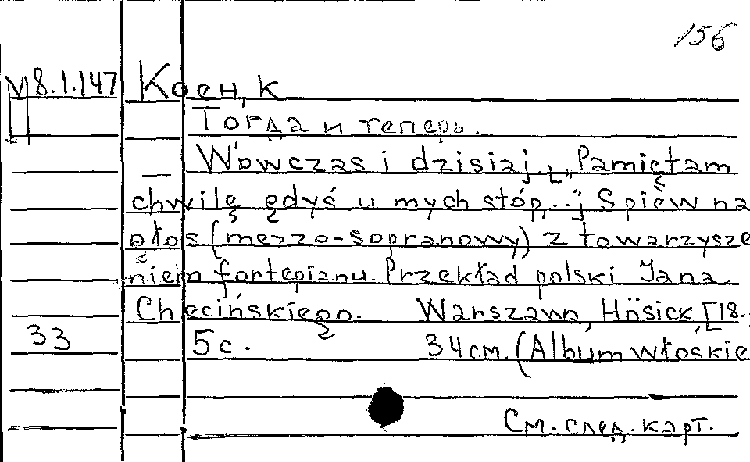 156
V 8.1.147 Коен, К
Тогда и теперь.
— Wówczas i dzisiaj. [„Pamiętam
chwilę gdyś u mych stóp..."] Śpiew na
głos (mezzo-sopranowy) z towarzysze
niem fortepianu. Przekład polski Jana
Chęcińskiego. Warszawa, Hösick, [18..
33 5 c. 34 cm. (Album włoskie
См. след. карт.